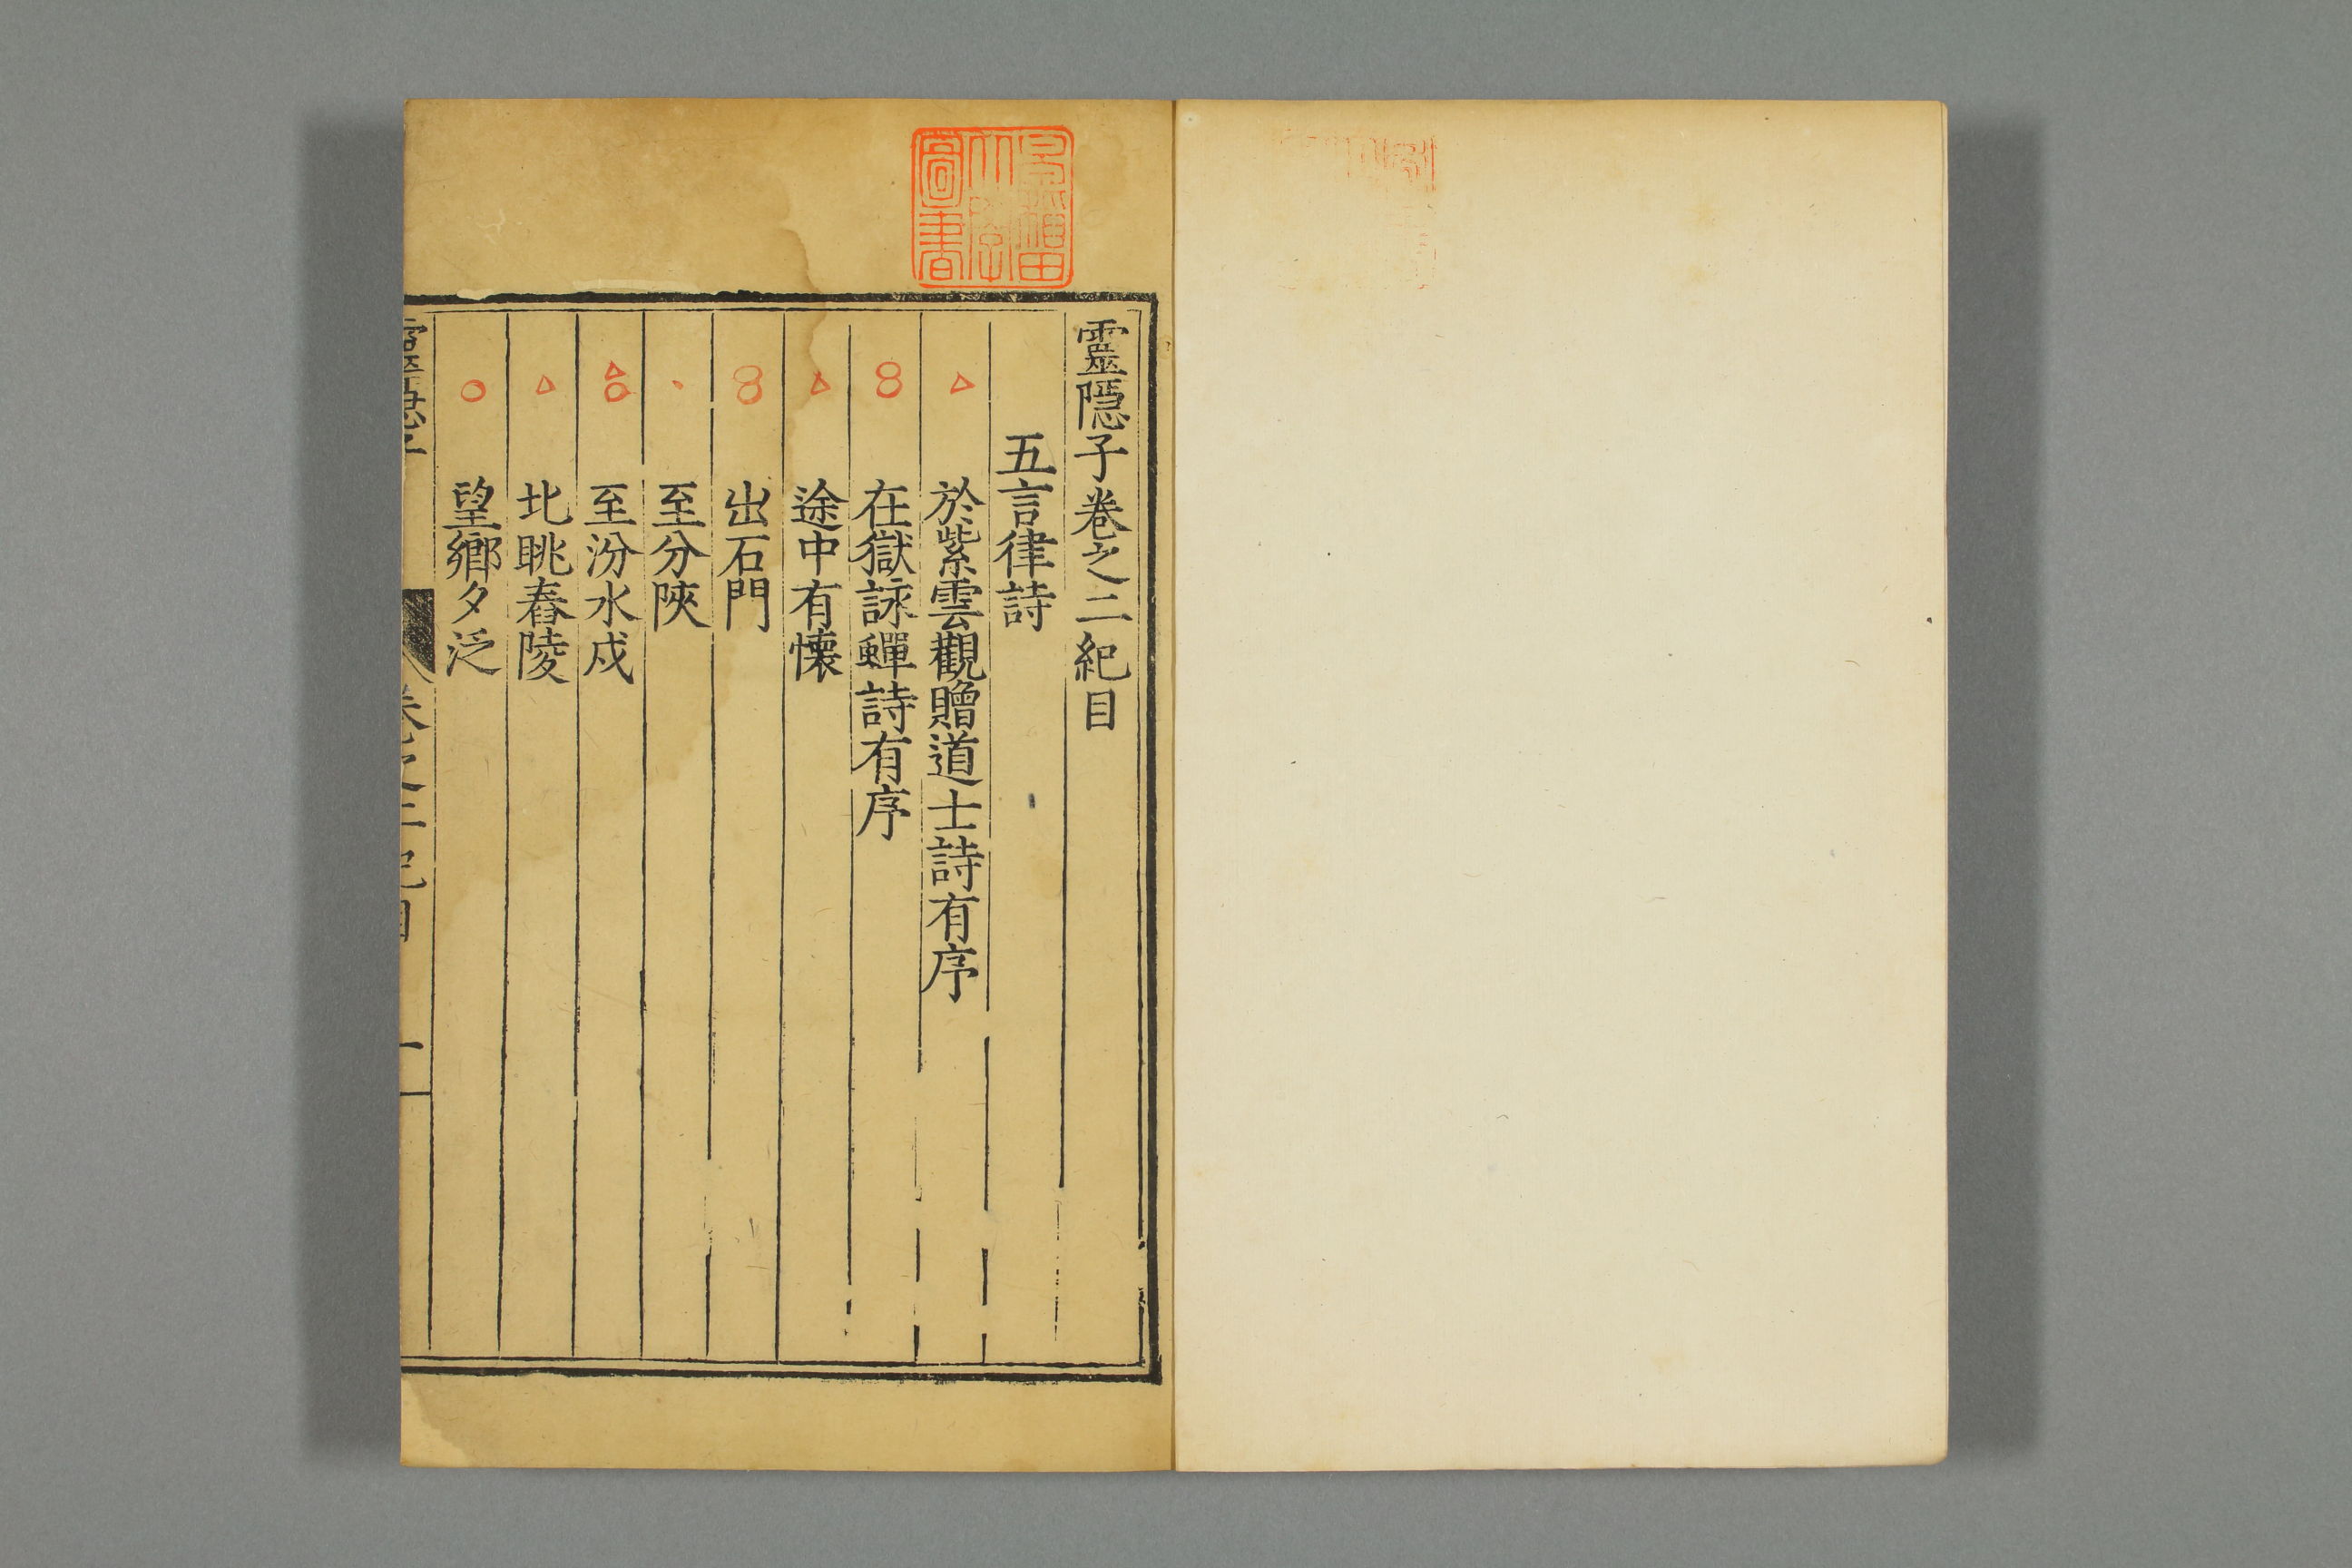 靈隱子卷之二紀目
五言律詩
於紫雲觀贈道士詩有序
在獄詠蟬詩有序
途中有懷
出石門
至分陝
至汾水戍
北眺舂陵
望鄉夕泛
靈隱子
卷之二紀目
一
早稲田
大學
圖書